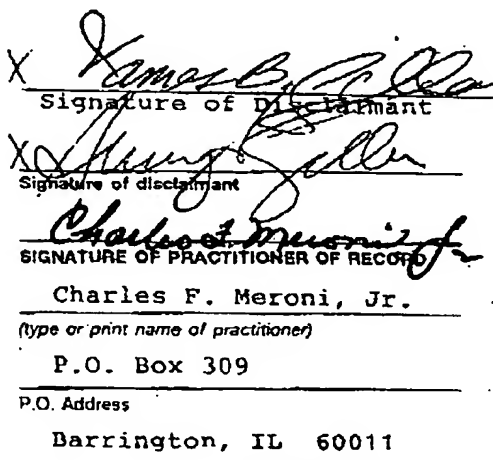 X James B.
Signature of Disclaimant
X
Signature of disclaimant
Charles F. Meroni Jr
SIGNATURE OF PRACTITIONER OF RECORD
Charles F. Meroni, Jr.
(type or print name of practitioner)
P.O. Box 309
P.O. Address
Barrington, IL 60011